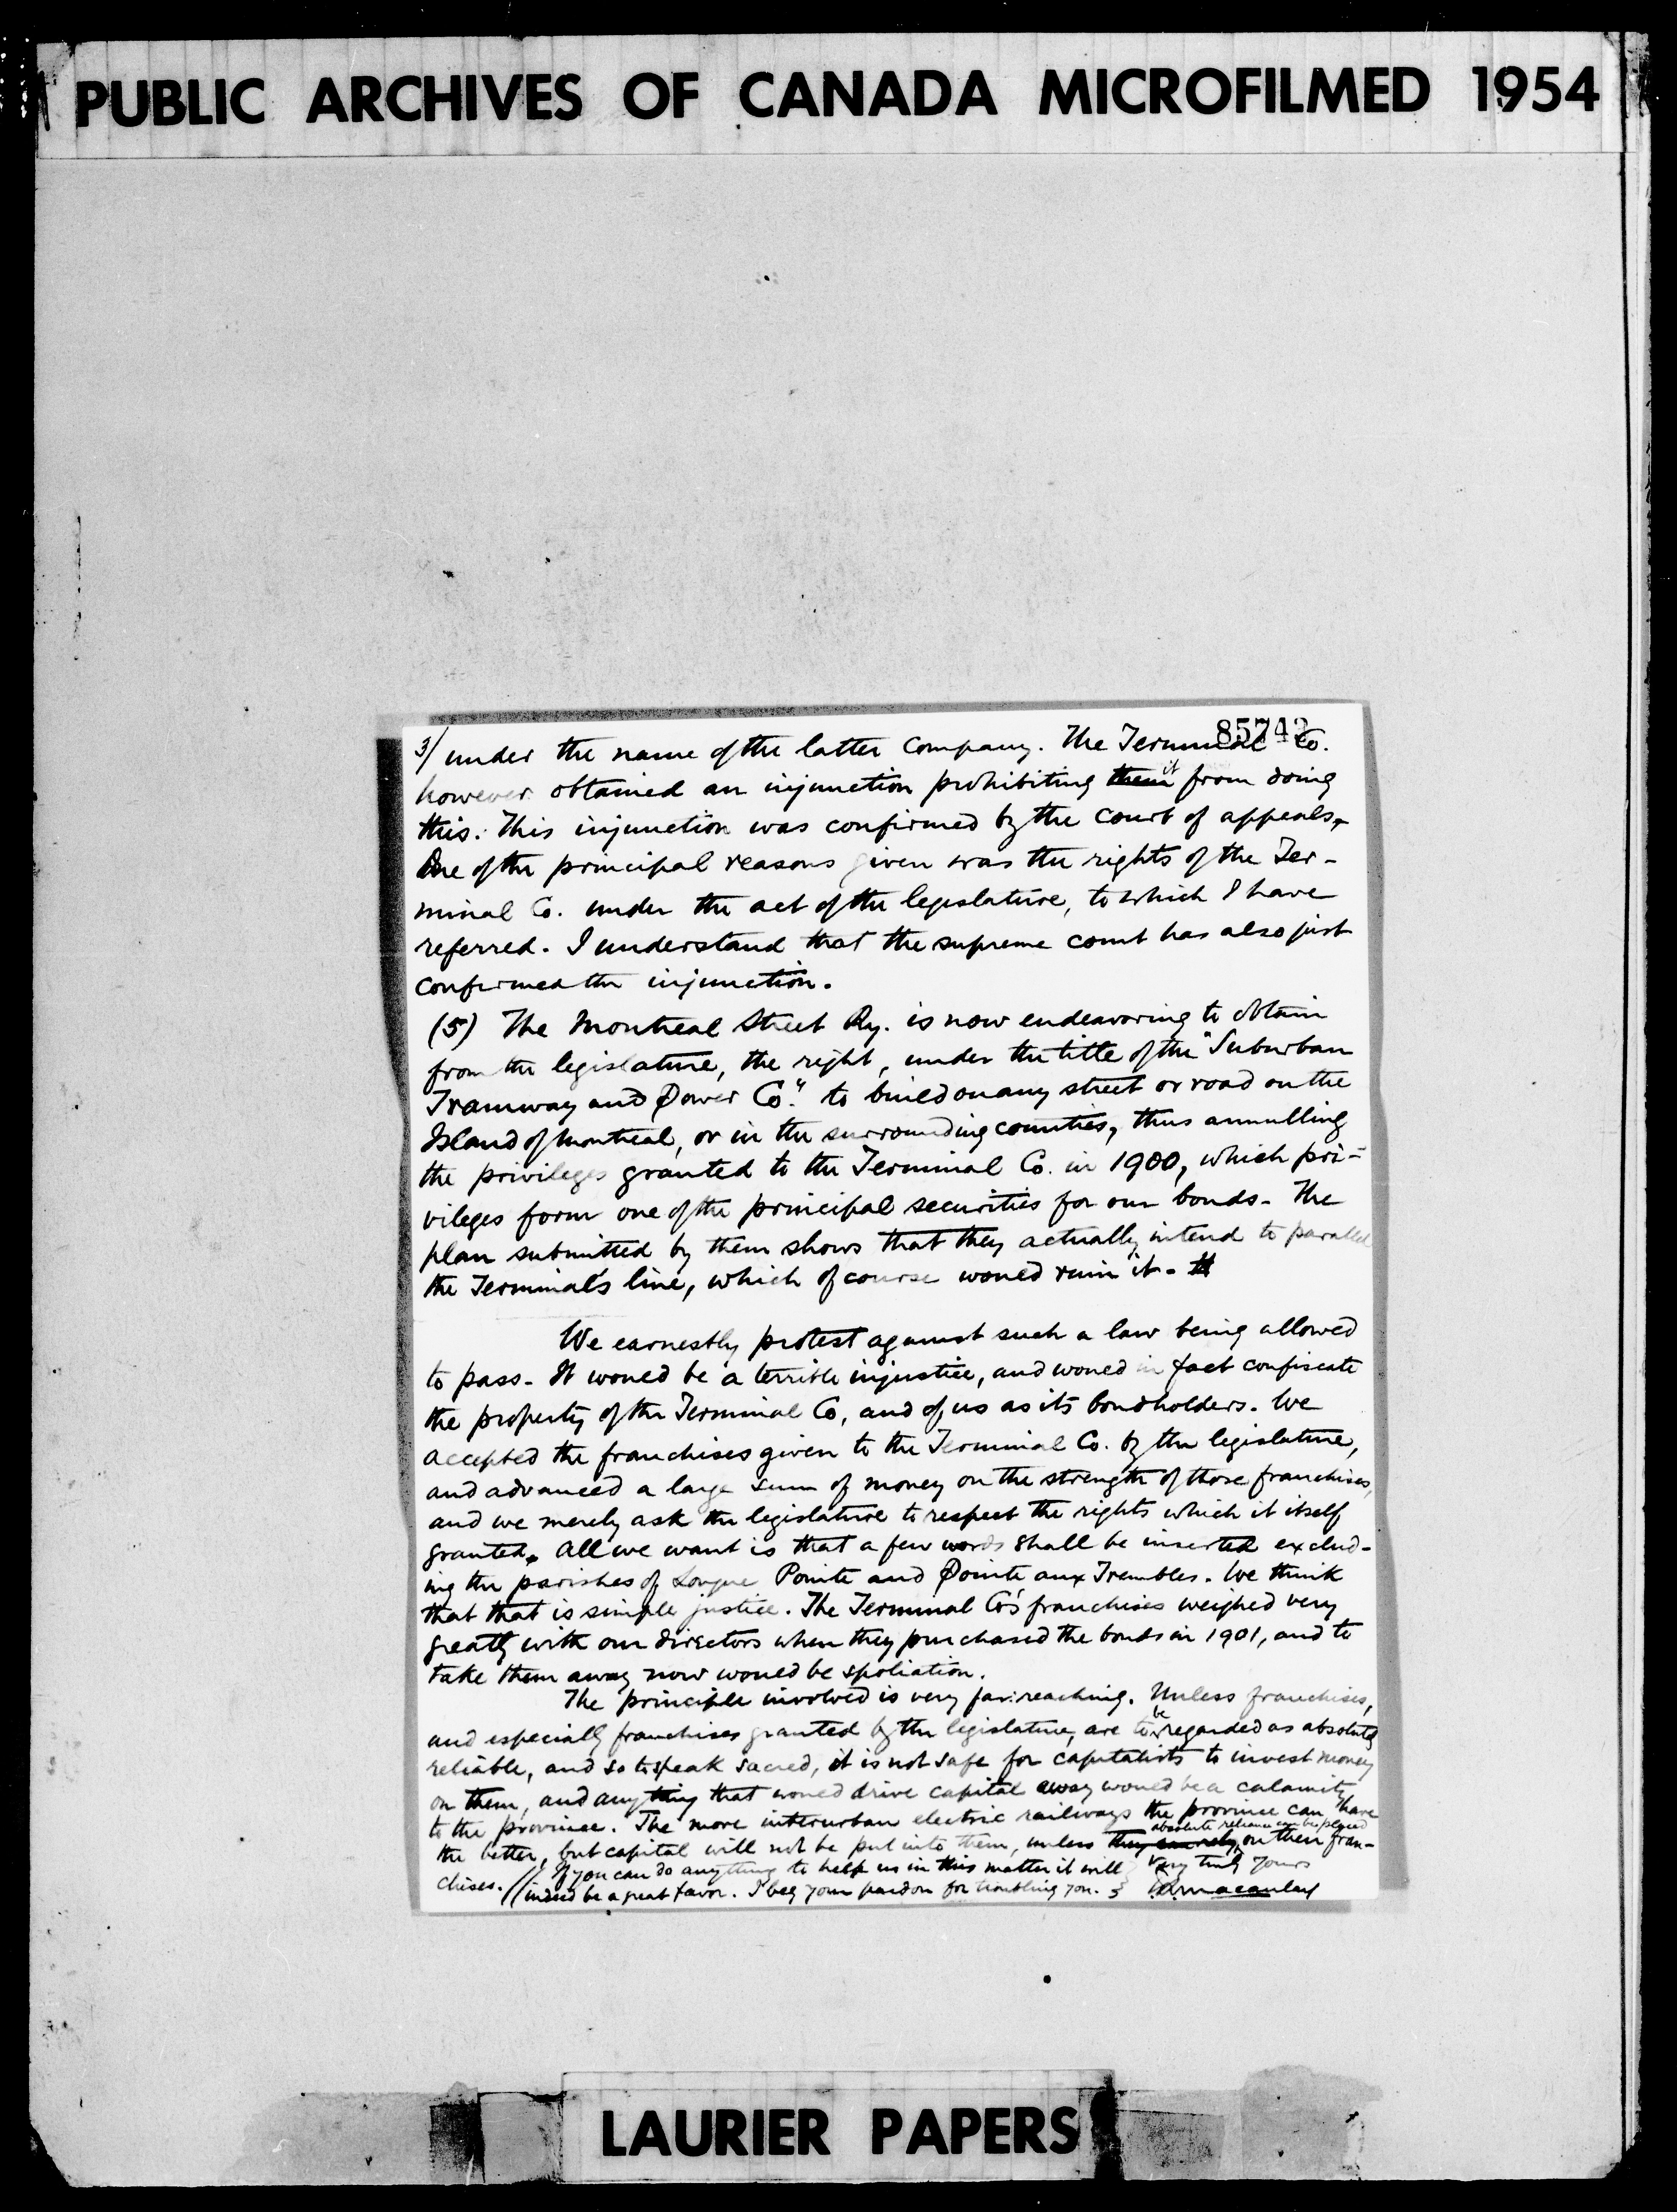 PUBLIC ARCHIVES OF CANADA MICROFILMED 1954
85742
3/ under the name of the latter Company. The Terminal Co.
however obtained an injunction prohibiting them it from doing
this. This injunction was confirmed by the Court of appeals,
One of the principal reasons given was the rights of the Ter-
minal Co. under the act of the legislature, to which I have
referred. I understand that the supreme court has also just
confirmed the injunction.
(5) The Montreal Street Ry. is now endeavoring to obtain
from the legislature, the right, under the title of the "Suburban
Tramway and Power Co." to build on any street or road on the
Island of Montreal, or in the surrounding counties, thus annulling
the privileges granted to the Terminal Co. in 1900, which pri=
vileges form one of the principal securities for our bonds. The
plan submitted by them shows that they actually intend to parallel
the Terminal's line, which of course would ruin it.
We earnestly protest against such a law being allowed
to pass. It would be a terrible injustice, and would in fact confiscate
the property of the Terminal Co, and of us as its bondholders. We
accepted the franchises given to the Terminal Co. by the legislature,
and advanced a large sum of money on the strength of those franchises,
and we merely ask the legislature to respect the rights which it itself
granted. All we want is that a few words shall be inserted exclud-
ing the parishes of Longue Pointe and Pointe aux Trembles. We think
that that is simple justice. The Terminal Co's franchises weighed very
greatly with our directors when they purchased the bonds in 1901, and to
take them away now would be spoliation.
The principle involved is very far reaching. Unless franchises,
and especially franchises granted by the legislature, are to be regarded as absolutely
reliable, and so to speak sacred, it is not safe for capitalists to invest money
on them, and anything that would drive capital away would be a calamity
to the province. The more interurban electric railways the province can have
the better, but capital will not be put into them, unless they can rely absolute reliance can be placed on then fran-
chises. // If you can do anything to help us in this matter it will
indeed be a great favor. I beg your pardon for troubling you.
Very truly yours
Macaulay
LAURIER PAPERS